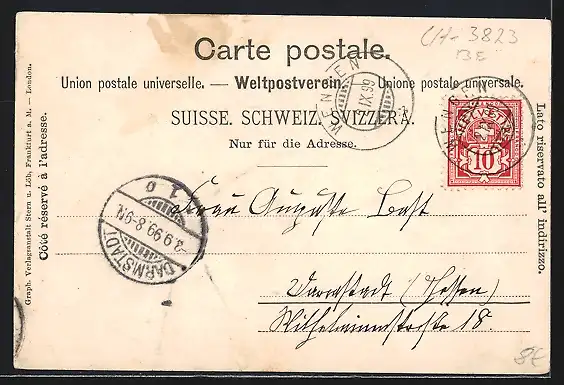 CH-3823
BE
Carte postale.
Union postale universelle. — Weltpostverein. — Unione postale universale.
SUISSE. SCHWEIZ. SVIZZERA.
Nur für die Adresse.
WENGEN
IX.99
WENGEN
10
Graph. Verlagsanstalt Stern u. Löb, Frankfurt a. M. — London.
Côté réservé à l'adresse.
Lato riservato all' indirizzo.
DARMSTADT
3.9.99.8-9N.
1 0
Frau Auguste Bast
Darmstadt (Hessen)
Wilhelminenstraße 18.
8€